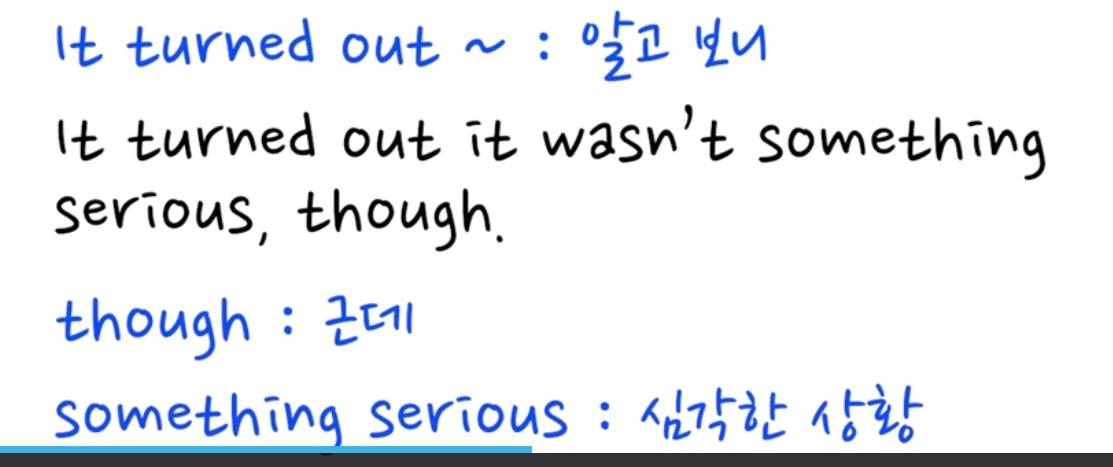 It turned out ~ : 알고 보니
It turned out it wasn't something
serious, though.
though : 근데
something serious : 심각한 상황